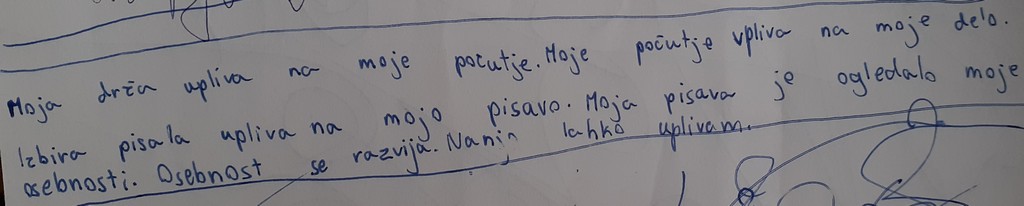 Moja drža upliva na moje počutje. Moje počutje vpliva na moje delo.
Izbira pisala upliva na mojo pisavo. Moja pisava je ogledalo moje
osebnosti. Osebnost se razvija. Nanjo lahko uplivam.